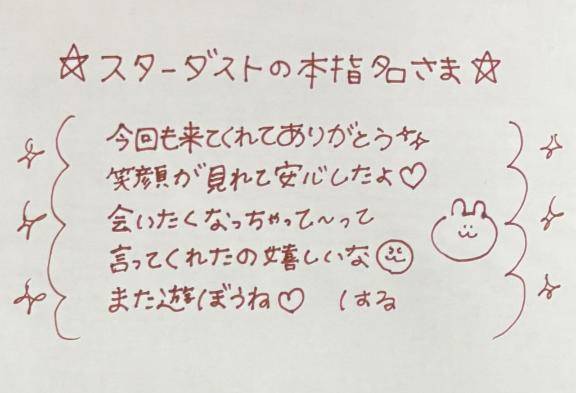 ☆スターダストの本指名さま☆
今回も来てくれてありがとう
笑顔が見れて安心したよ♡
会いたくなっちゃって〜って
言ってくれたの嬉しいな
また遊ぼうね♡ はる